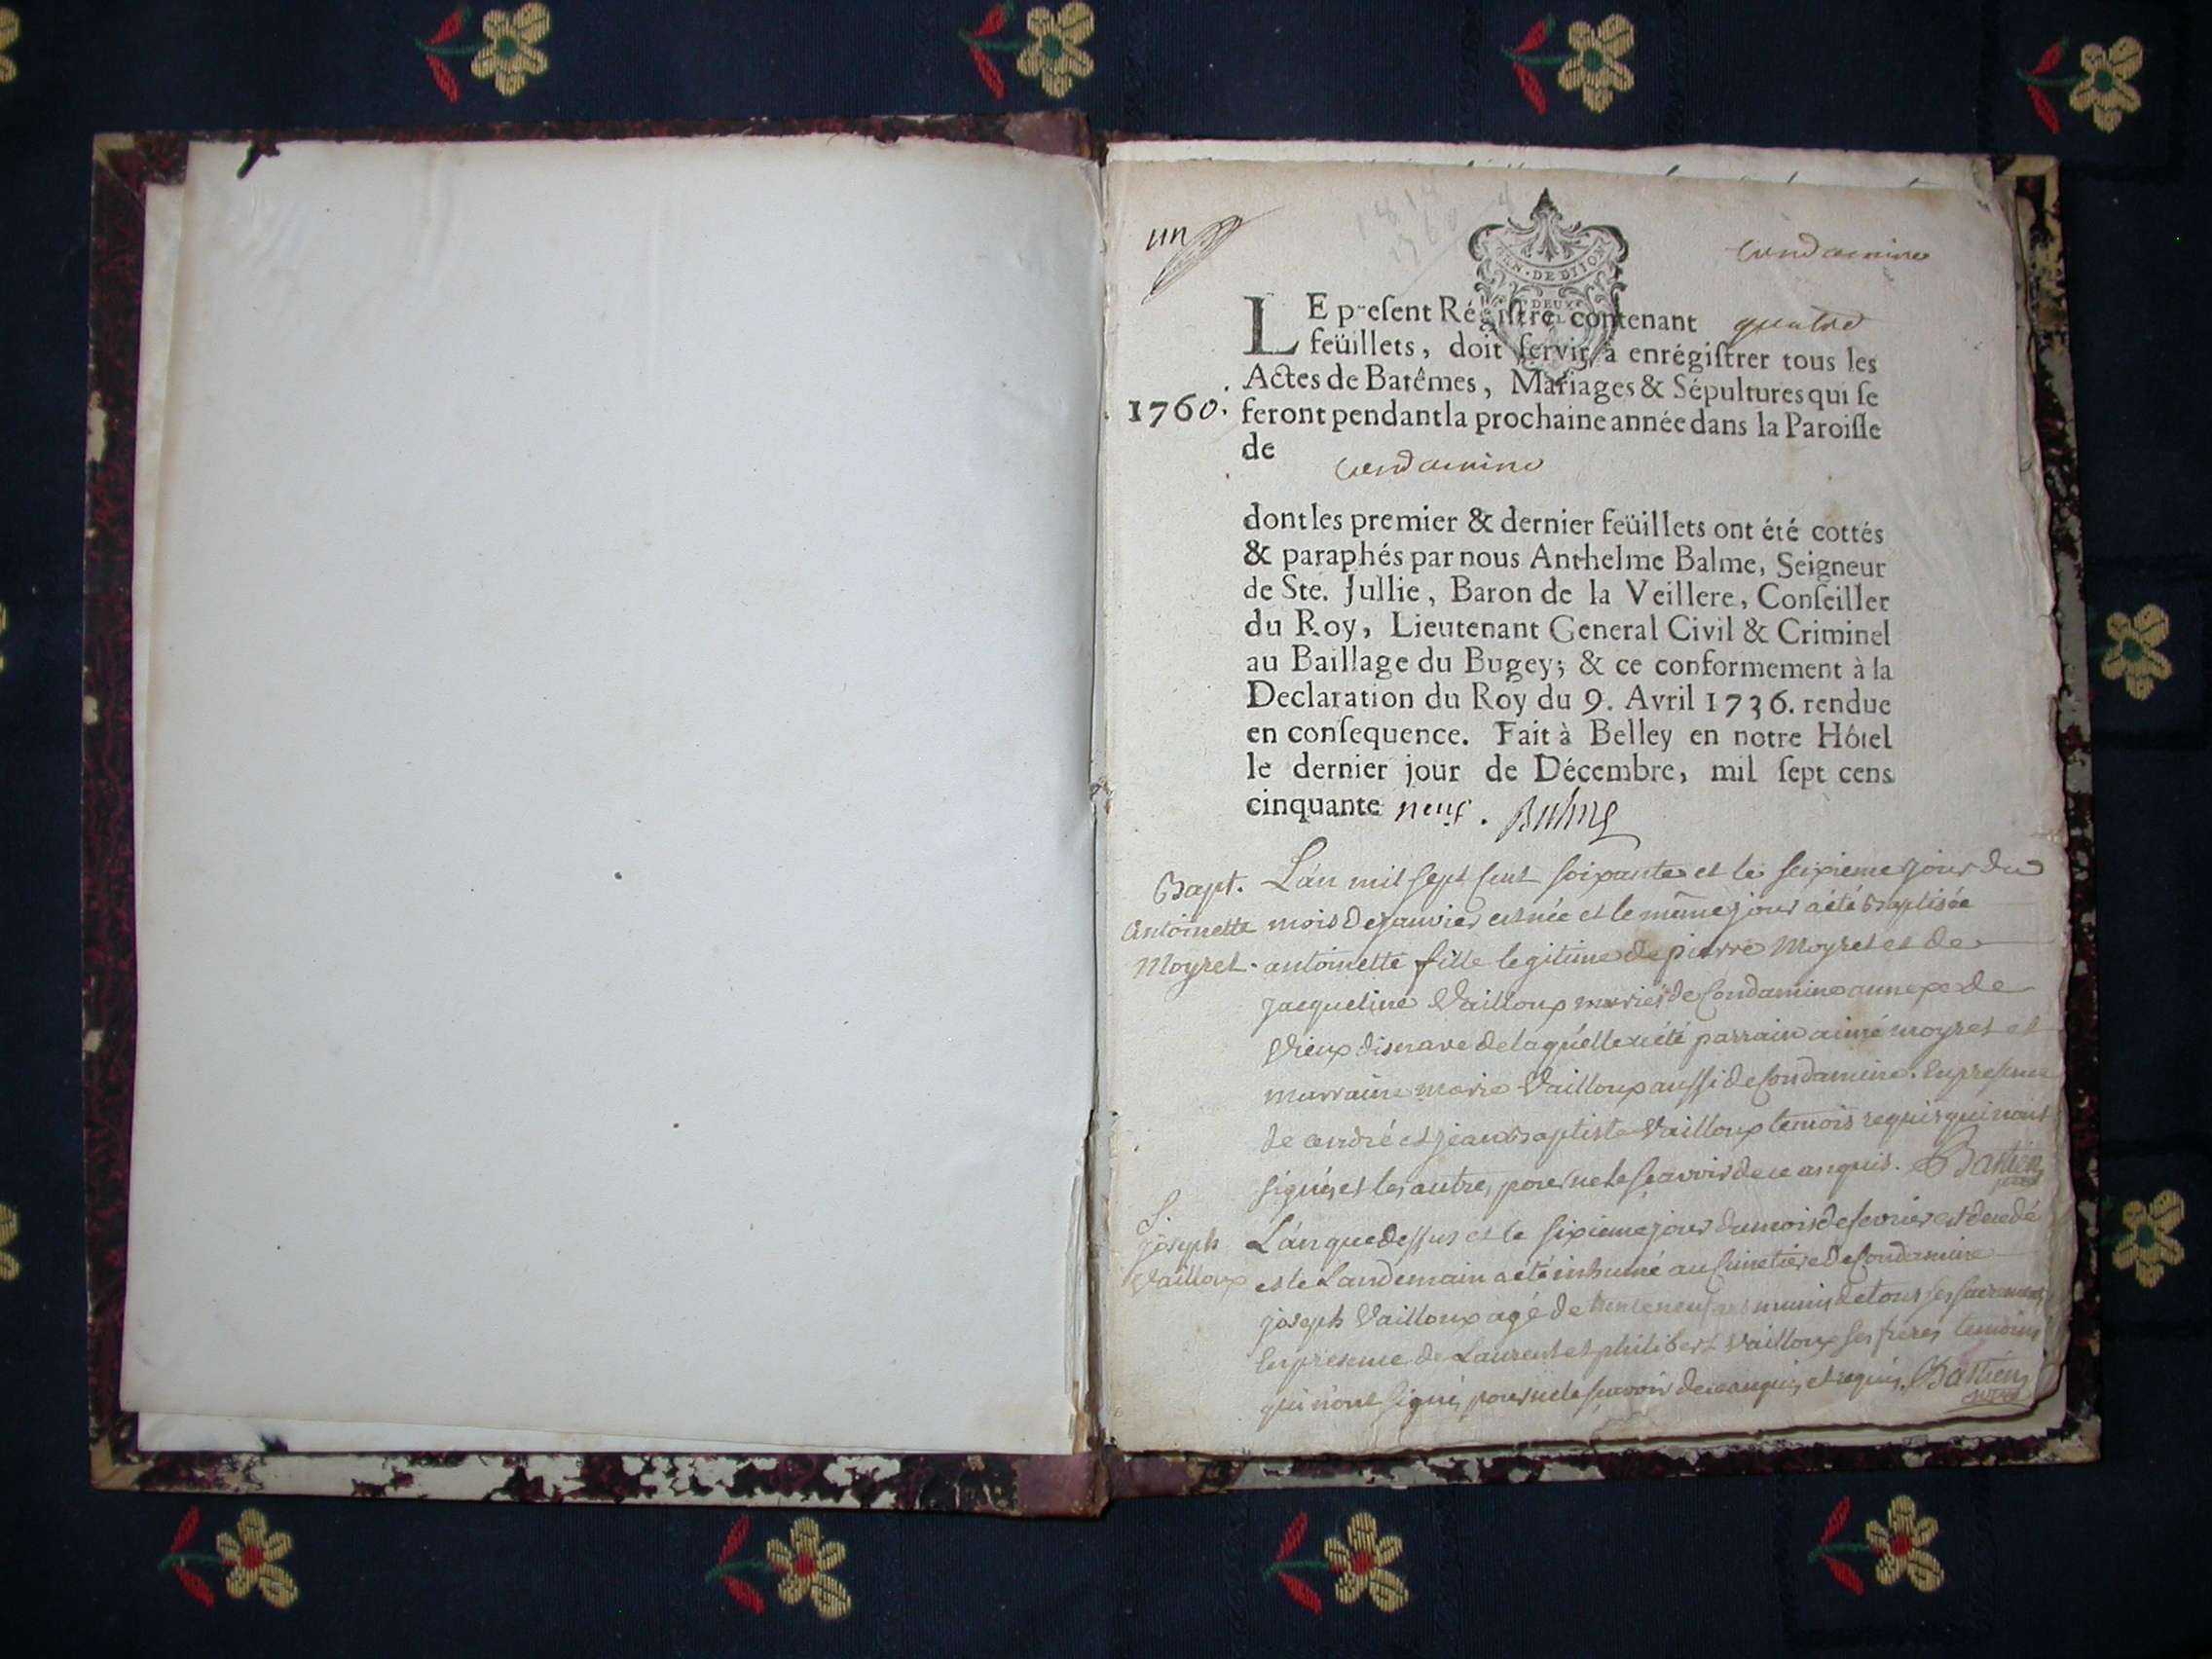 un
Condamine
GEN. DE DIJON
DEUX
LE preſent Régiſtre contenant quatre
feüillets, doit ſervir à enrégiſtrer tous les
Actes de Batêmes, Mariages & Sépultures qui ſe
1760. feront pendant la prochaine année dans la Paroiſſe
de
Condamine
dont les premier & dernier feüillets ont été cottés
& paraphés par nous Anthelme Balme, Seigneur
de Ste. Jullie, Baron de la Veillere, Conſeiller
du Roy, Lieutenant General Civil & Criminel
au Baillage du Bugey; & ce conformement à la
Declaration du Roy du 9. Avril 1736. rendue
en conſequence. Fait à Belley en notre Hôtel
le dernier jour de Décembre, mil ſept cens
cinquante neuf. Balme
Bapt. L'an mil sept cent soixante et le seixieme jour du
Antoinette mois de janvier est née et le même jour a été baptisée
Moyret. antoinette fille legitime de pierre Moyret et de
jacqueline Vailloux mariés de Condamine annexe de
Vieux disnave de laquelle a été parrain aimé moyret et
marraine marie Vailloux aussi de Condamine. En presence
de andré et jean baptiste Vailloux temois requis qui n'ont
signés et les autres pour ne le sçavoir de ce enquis. Bastien
S.
joseph L'an que dessus et le sixieme jour du mois de fevrier est decedé
Vailloux et le Landemain a été inhumé au Cimetiere de Condamine
joseph Vailloux agé de trente neuf ans munis de tous ses sacremens
En presence de Laurent et philibert Vailloux ses freres temoins
qui n'ont signé pour ne le sçavoir de ce enquis et requis. Bastien